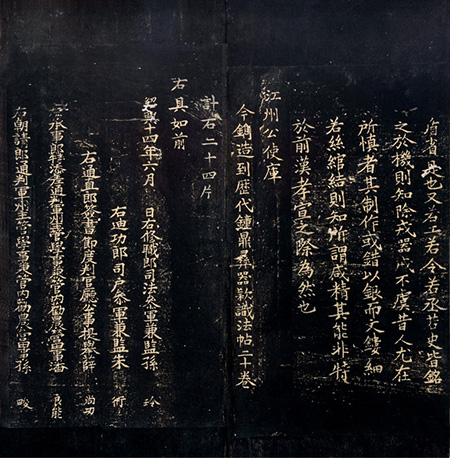 是也又右工若令若丞若史皆銘
之於機則知除戎器戒不虞昔人尤在
所慎者其制作或錯以銀而天鏤細
若絲綰結則知所謂咸精其能非特
於前漢孝宣之際為然也
江州公使庫
今鐫造到歷代鐘鼎彝器款識法帖二十卷
計石二十四片
右具如前
紹興十四年六月 日右修職郎司法參軍兼監孫 玠
右迪功郎司戶參軍兼監朱 術
右通直郎簽書節度判官廳公事提舉薛 尚功
右承事郎特差通判軍州主管學事兼管內勸農營田事潘 良能
右朝請郎通判軍州主管學事兼管內勸農營田事孫 畯